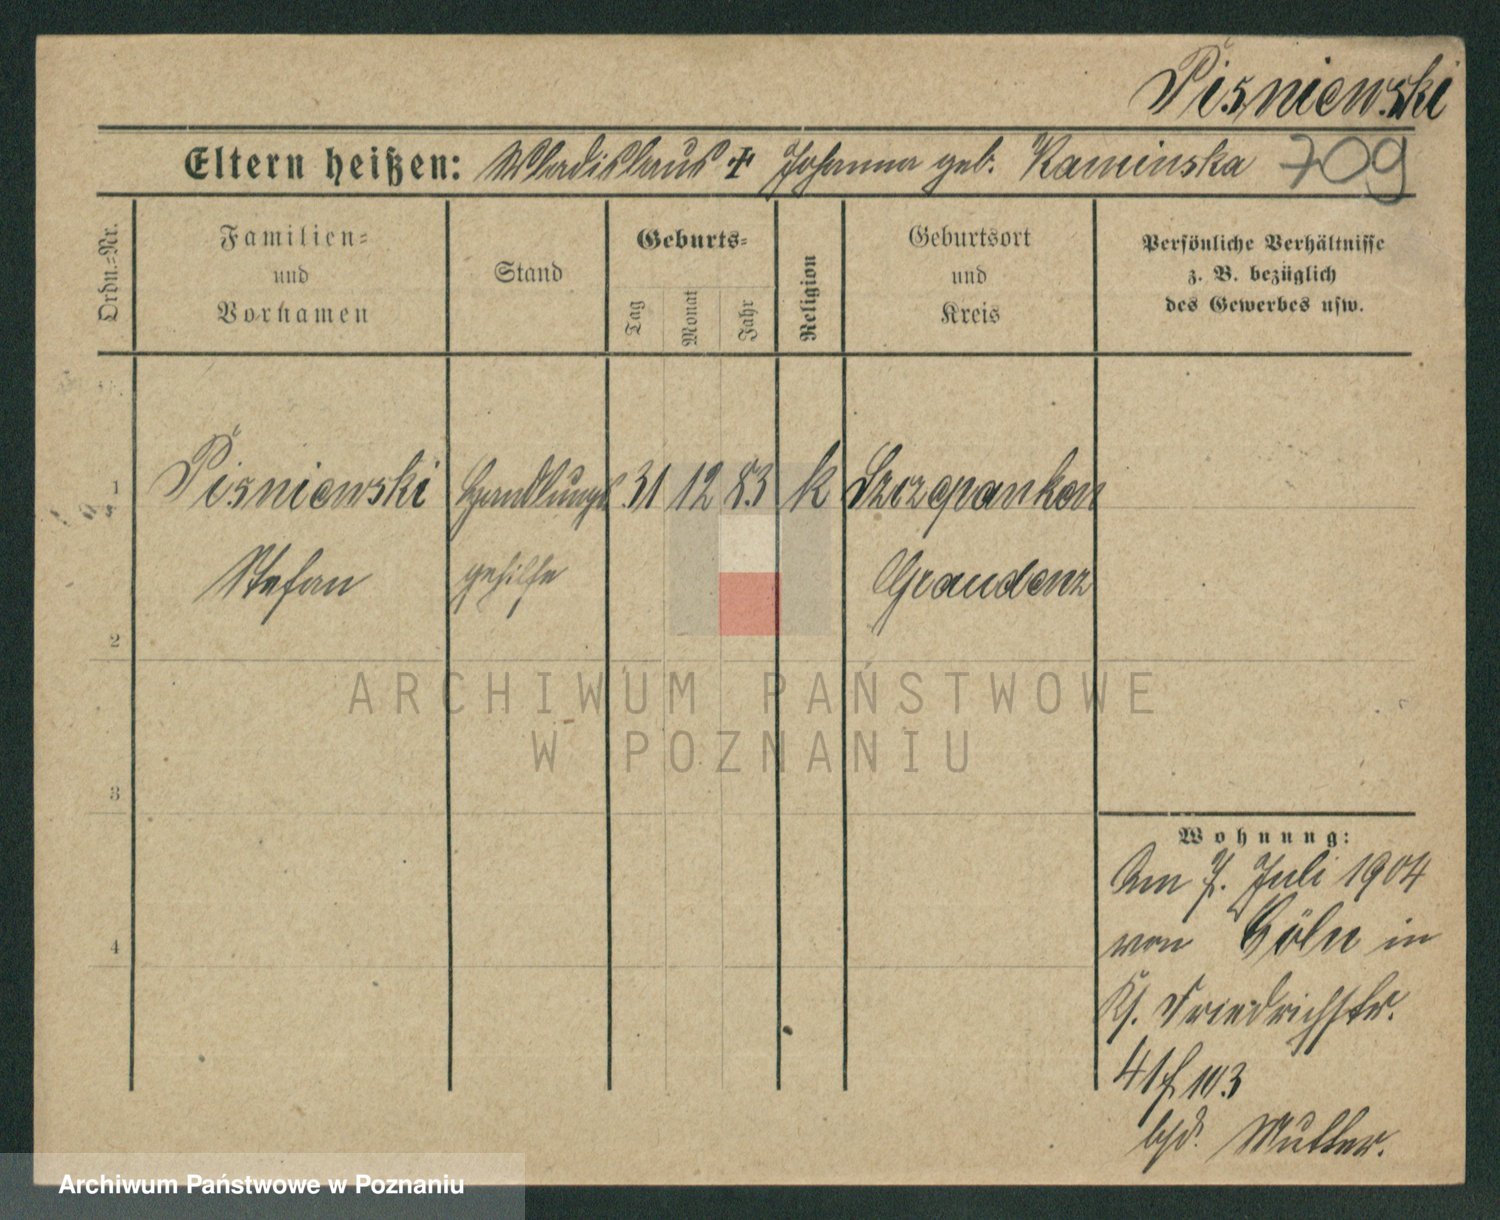 Pisniewski
Eltern heißen: Wladislaus + Johanna geb. Kaminska 709
Ordn.-Nr.
Familien- und Vornamen
Stand
Geburts-
Tag
Monat
Jahr
Religion
Geburtsort und Kreis
Persönliche Verhältnisse
z. B. bezüglich
des Gewerbes usw.
1 Pisniewski Handlungs 31 12 83 k Szczepanken
Stefan gehilfe Graudenz
2
ARCHIWUM PAŃSTWOWE
W POZNANIU
3
Wohnung:
Am 7. Juli 1904
von Cöln in
4
Friedrichstr.
41
bsd. Mutter.
Archiwum Państwowe w Poznaniu